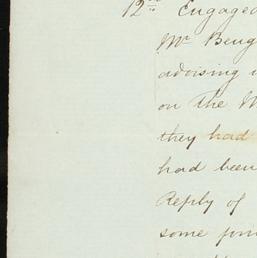 12th Engaged
Mr Beng
advising
on the M
they had
had been
Reply of
some